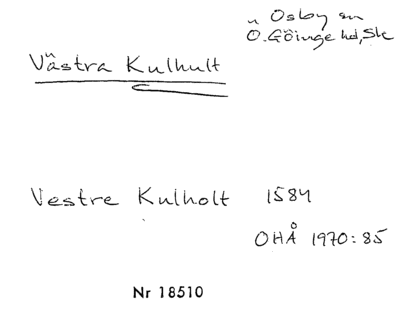 Osby sn
Ö. Göinge hd, Sk
Västra Kulhult
Vestre Kulholt 1584
OHÅ 1970:85
Nr 18510